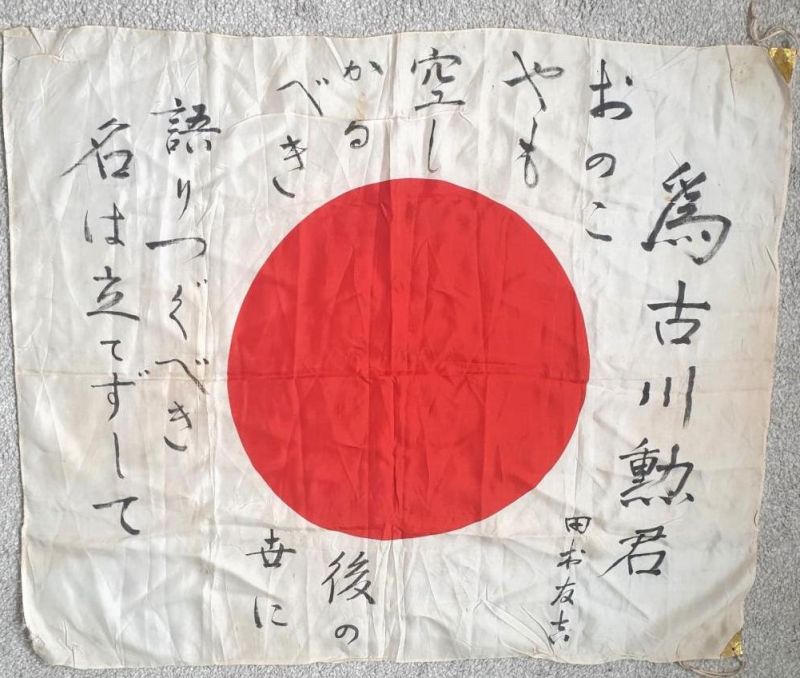 爲古川勲君
おのこ
やも
空し
かる
べき
後の
世に
語りつぐべき
名は立てずして